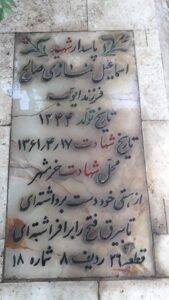 پاسدار شهید
اسماعیل خبازی صالح
فرزند ایوب
تاریخ تولد ۱۳۴۴
تاریخ شهادت ۱۳۶۱/۴/۱۷
محل شهادت خرمشهر
از هستی خود دست برداشته‌ای
تا بیرق فتح را برافراشته‌ای
قطعه ۲۶ ردیف ۸ شماره ۱۸